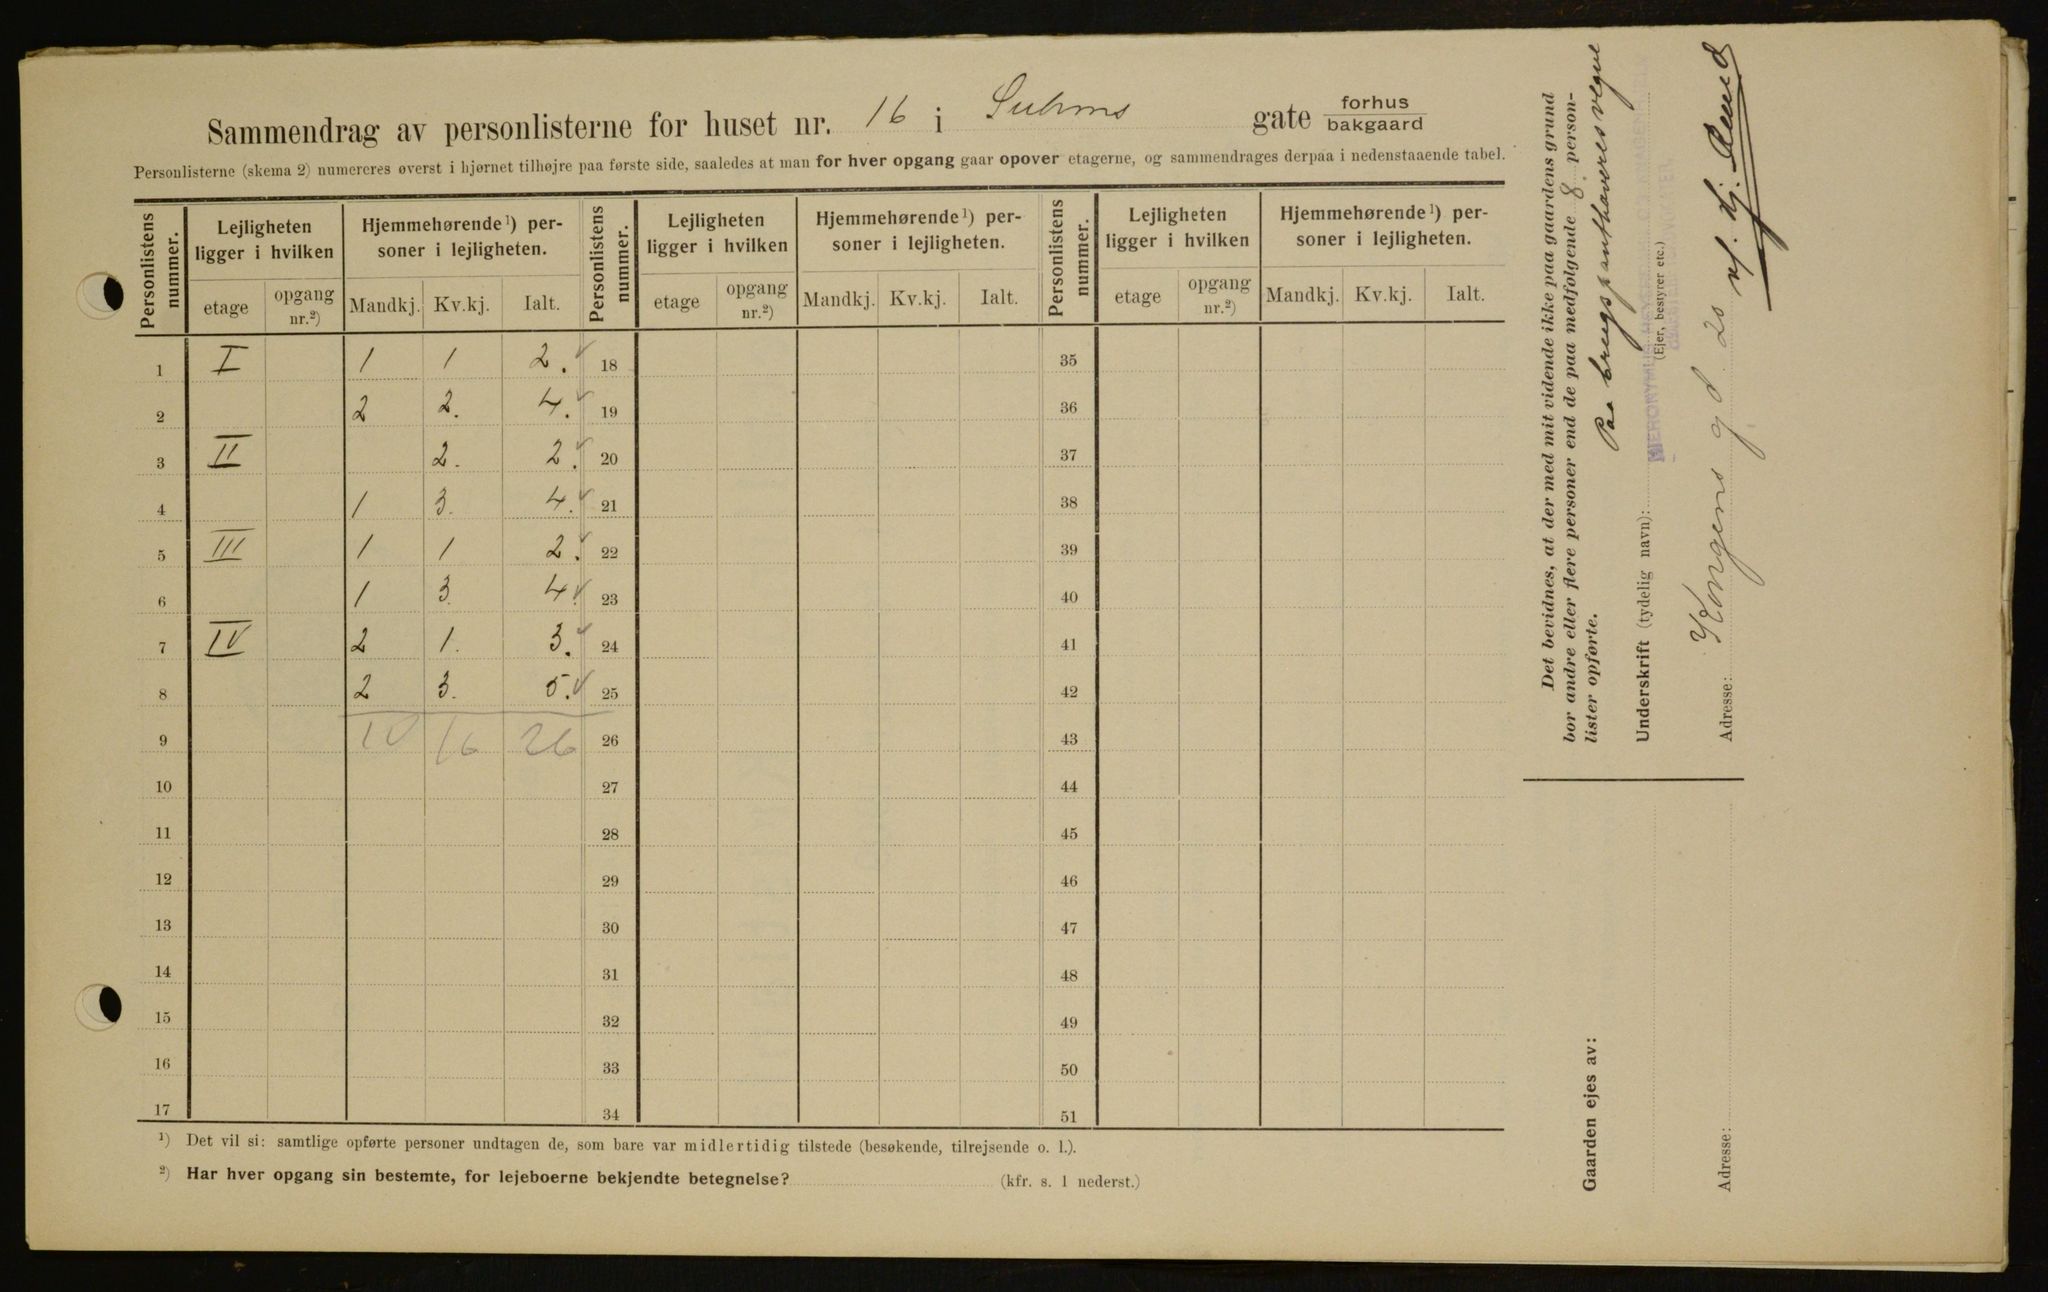 Sammendrag av personlisterne for huset nr. 16 i Suhms gate forhus
bakgaard
Personlisterne (skema 2) numereres øverst i hjørnet tilhøjre paa første side, saaledes at man for hver opgang gaar opover etagerne, og sammendrages derpaa i nedenstaaende tabel.
Personlistens nummer. Lejligheten ligger i hvilken Hjemmehørende ¹) personer i lejligheten. Personlistens nummer. Lejligheten ligger i hvilken Hjemmehørende ¹) personer i lejligheten. Personlistens nummer. Lejligheten ligger i hvilken Hjemmehørende ¹) personer i lejligheten.
etage opgang nr.²) Mandkj. Kv.kj. Ialt. etage opgang nr.²) Mandkj. Kv.kj. Ialt. etage opgang nr.²) Mandkj. Kv.kj. Ialt.
1 I 1 1 2. 18 35
2 2 2. 4. 19 36
3 II 2. 2. 20 37
4 1 3. 4. 21 38
5 III 1 1 2. 22 39
6 1 3. 4. 23 40
7 IV 2 1. 3. 24 41
8 2 3. 5. 25 42
9 10 16 26 26 43
10 27 44
11 28 45
12 29 46
13 30 47
14 31 48
15 32 49
16 33 50
17 34 51
¹) Det vil si: samtlige opførte personer undtagen de, som bare var midlertidig tilstede (besøkende, tilrejsende o. l.).
²) Har hver opgang sin bestemte, for lejeboerne bekjendte betegnelse? (kfr. s. 1 nederst.)
Det bevidnes, at der med mit vidende ikke paa gaardens grund
bor andre eller flere personer end de paa medfølgende 8 person-
lister opførte.
Paa brugspanthaveres vegne
Underskrift (tydelig navn):
HIERONYMUS
(Ejer, bestyrer etc.)
Adresse: Kongens gd 20
Gaarden ejes av:
Adresse: